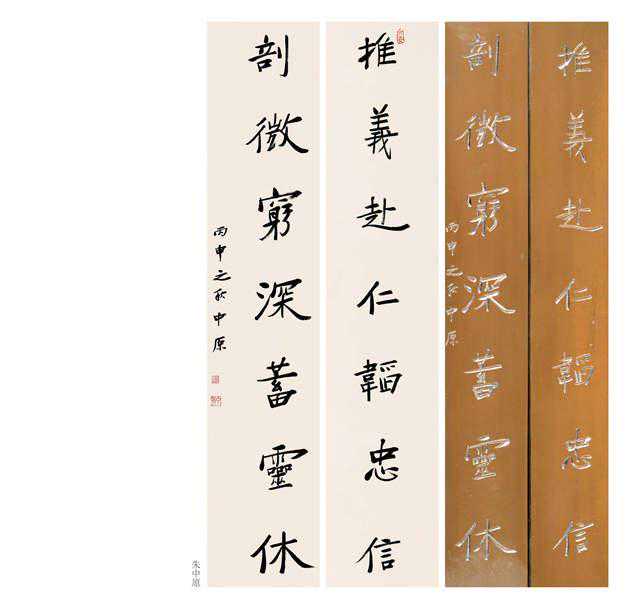 推義赴仁韜忠信
剖微窮深蓄靈休
丙申之秋中原
推義赴仁韜忠信
剖微窮深蓄靈休
丙申之秋中原
朱中原